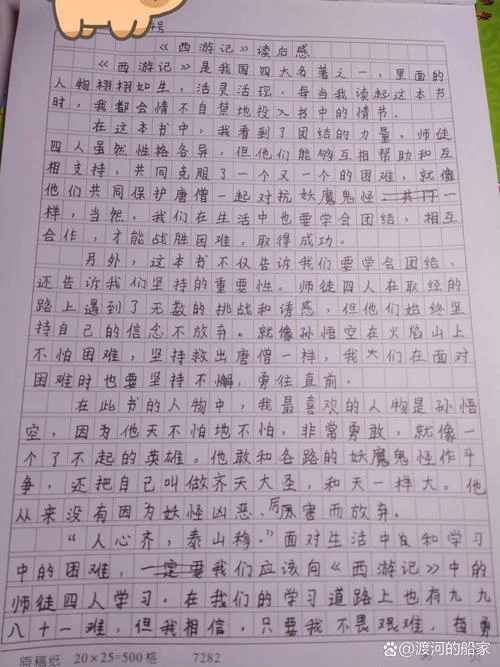 号
《西游记》读后感
《西游记》是我国四大名著之一，里面的
人物栩栩如生，活灵活现，每当我读起这本书
时，我都会情不自禁地投入书中的情节．
在这本书中，我看到了团结的力量。师徒
四人虽然性格各异，但他们能够互相帮助和互
相支持，共同克服了一个又一个的困难，就像
他们共同保护唐僧一起对抗妖魔鬼怪一
样，当然，我们在生活中也要学会团结，相互
合作，才能战胜困难，取得成功。
另外，这本书不仅告诉我们要学会团结，
还告诉我们坚持的重要性。师徒四人在取经的
路上遇到了无数的挑战和诱惑，但他们始终坚
持自己的信念不放弃。就像孙悟空在火焰山上
不怕困难，坚持救出唐僧一样，我们在面对
困难时也要坚持不懈，勇往直前。
在此书的人物中，我最喜欢的人物是孙悟
空，因为他天不怕地不怕，非常勇敢，就像一
个了不起的英雄。他敢和各路的妖魔鬼怪作斗
争，还把自己叫做齐天大圣，和天一样大。他
从来没有因为妖怪凶恶、厉害而放弃。
“人心齐，泰山移。”面对生活中和学习
中的困难，我们应该向《西游记》中的
师徒四人学习。在我们的学习道路上也有九九
八十一难，但我相信，只要我不畏艰难，
原稿纸 20×25=500格 7282
@渡河的船家